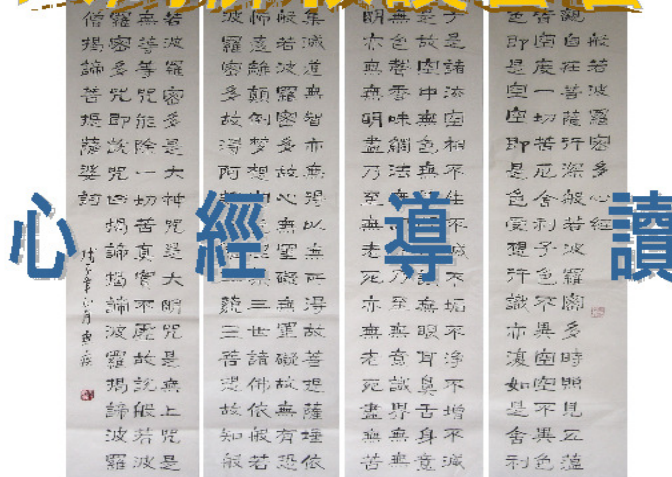 心經導讀
般若波羅密多心經
觀自在菩薩行深般若波羅密多時照見五蘊
皆空度一切苦厄舍利子色不異空空不異色
色即是空空即是色受想行識亦復如是舍利
子是諸法空相不生不滅不垢不淨不增不減
是故空中無色無識無眼耳鼻舌身意
無色聲香味觸法無乃至無意識界無無
明亦無無明盡乃至無老死亦無老死盡無苦
集滅道無智亦無得以無所得故菩提薩埵依
般若波羅密多故心無罣礙無罣礙故無有恐
怖遠離顛倒夢想三世諸佛依般若
波羅密多故得阿三藐三菩提故知般
若波羅密多是大神咒是大明咒是無上咒是
無等等咒能除一切苦真實不虛故說般若波
羅密多咒即說咒曰揭諦揭諦波羅揭諦波羅
僧揭諦菩提薩婆訶